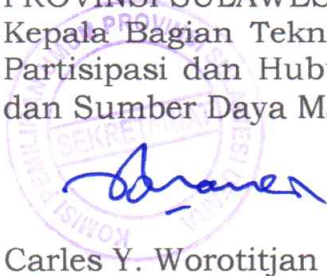 PROVINSI SULAWES
Kepala Bagian Tekn
Partisipasi dan Hub
dan Sumber Daya M
KOMISI PEMILIHAN UMUM PROVINSI SULAWESI UTARA
SEKRET
Carles Y. Worotitjan